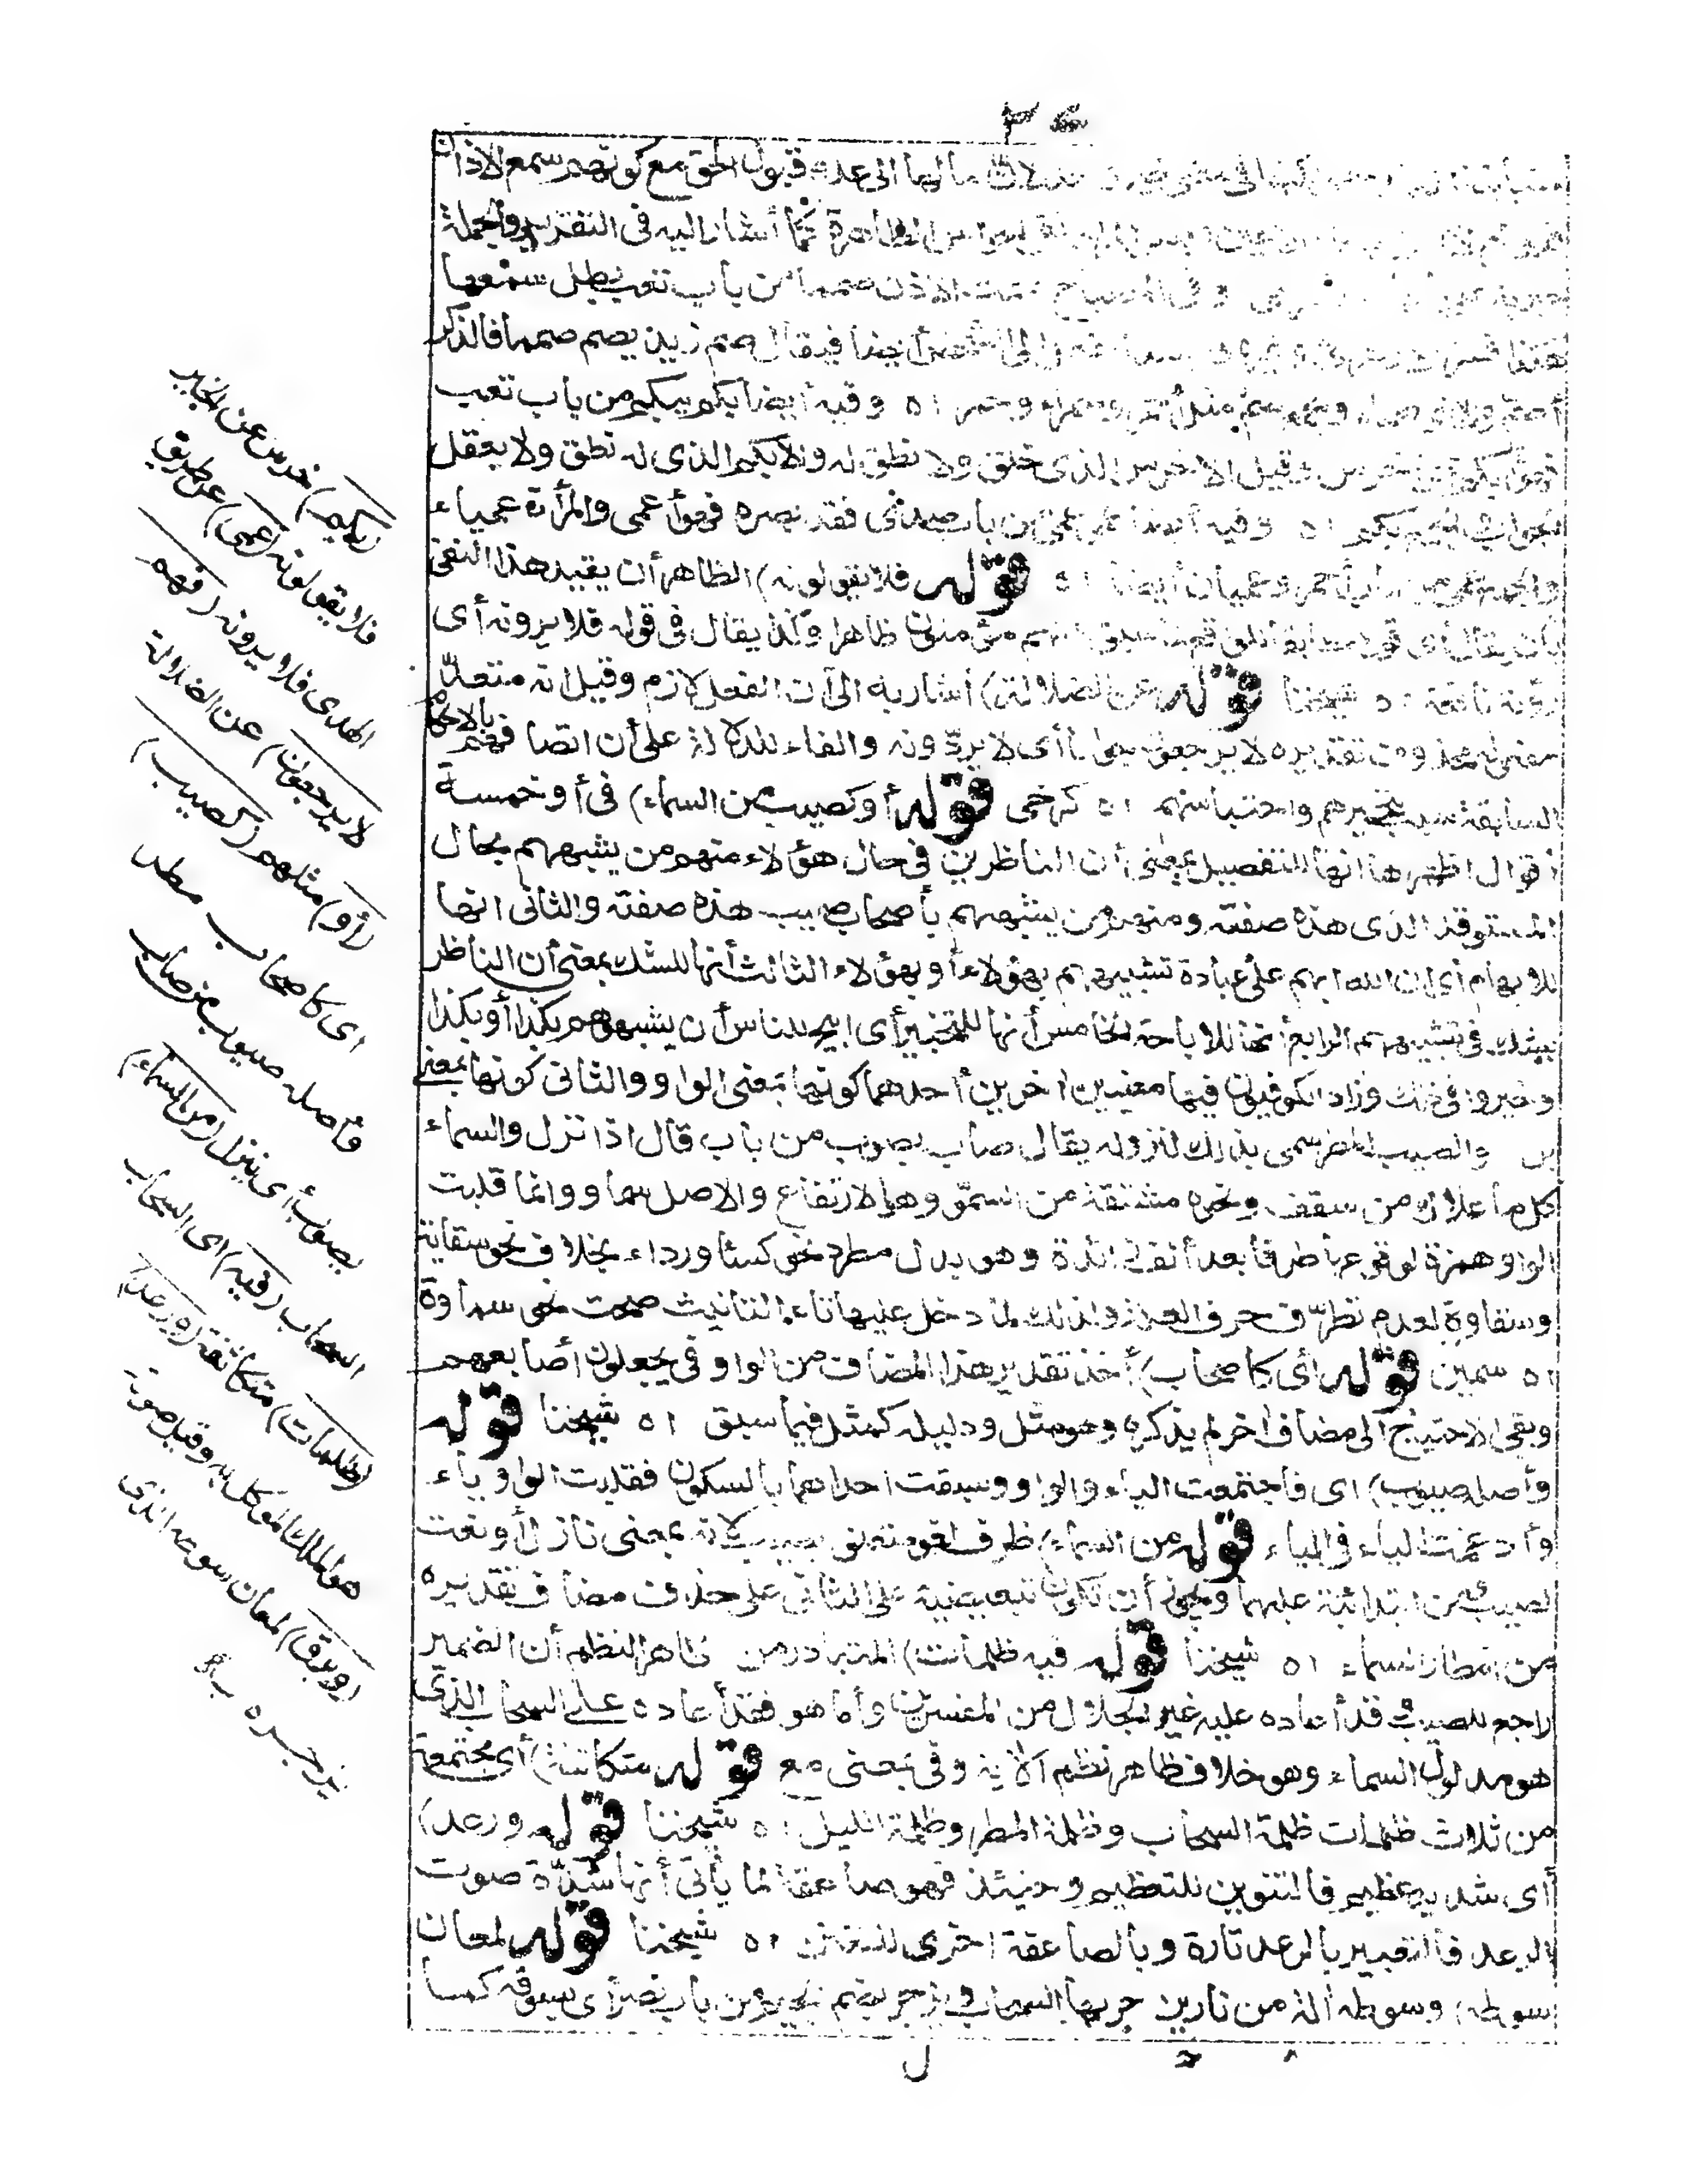 مالها الى عدم قبول الحق مع كونهم سمع الاذان
الظاهرة كما أشار اليه فى التقرير والجملة
وفى المصباح صمت الاذن صمما من باب تعب بطل سمعها
أيضا فيقال صم زيد يصم صمما فالذكر
أصم مثل أحمر وحمراء وحمر اه وفيه أيضا بكم يبكم من باب تعب
فهو أبكم أى أخرس وقيل الاخرس الذى خلق ولا نطق له والابكم الذى له نطق ولا يعقل
الجواب والجمع بكم اه وفيه أيضا عمى من باب صدى فقد بصره فهو أعمى والمرأة عمياء
والجمع عمى من باب أحمر وعميان أيضا اه قوله فلا يقولونه) الظاهر أن يقيد هذا النفى
ظاهرا وكذا يقال فى قوله فلا يرونه أى
رؤية نافعة اه شيخنا قوله عن الضلالة) أشار به الى أن الفعل لازم وقيل انه متعد
مفعوله محذوف تقديره لا يرجعون جوابا أى لا يردونه والفاء للدلالة على أن اتصافهم بالاحكام
السابقة سبب لتحيرهم واحتباسهم اه كرخى قوله أو كصيب من السماء) فى أو خمسة
أقوال اظهرها انها للتفصيل بمعنى أن الناظرين فى حال هؤلاء منهم من يشبههم بحال
المستوقد الذى هذه صفته ومنهم من يشبههم بأصحاب صيب هذه صفته والثانى انها
للابهام أى ان الله ابهم على عباده تشبيههم بهؤلاء أو بهؤلاء الثالث أنها للشك بمعنى أن الناظر
يشك فى تشبيههم الرابع أنها للاباحة الخامس أنها للتخيير أى ابيح للناس أن يشبهوهم بكذا أو بكذا
وخيروا فى ذلك وزاد الكوفيون فيها معنيين اخرين أحدهما كونها بمعنى الواو والثانى كونها بمعنى
بل والصيب المطر سمى بذلك لنزوله يقال صاب يصوب من باب قال اذا نزل والسماء
كل ما علاك من سقف ونحوه مشتقة من السمو وهو الارتفاع والاصل سماو وانما قلبت
الواو همزة لوقوعها طرفا بعد ألف زائدة وهو بدل مطرد نحو كساء ورداء بخلاف نحو سقاية
وشقاوة لعدم تطرف حرف العلة ولذلك لما دخل عليها تاء التانيث صحت نحو سماوة
اه سمين قوله أى كاصحاب) أخذ تقدير هذا المضاف من الواو فى يجعلون أصابعهم
وبقى الاحتياج الى مضاف اخر لم يذكره وهو مثل ودليله كمثل فيما سبق اه شيخنا قوله
وأصله صيوب) اى فاجتمعت الياء والواو وسبقت احداهما بالسكون فقلبت الواو ياء
وأدغمت الياء فى الياء قوله من السماء) ظرف لغو متعلق بصيب لانه بمعنى نازل أو نعت
لصيب من ابتدائية عليهما ويجوز أن تكون تبعيضية على الثانى على حذف مضاف تقديره
من امطار السماء اه شيخنا قوله فيه ظلمات) المتبادر من ظاهر النظم أن الضمير
راجع للصيب وقد أعاده عليه غير الجلال من المفسرين وأما هو فقد أعاده على السحاب الذى
هو مدلول السماء وهو خلاف ظاهر نظم الآية وفى بمعنى مع قوله متكاثفة) أى مجتمعة
من ثلاث ظلمات ظلمة السحاب وظلمة المطر وظلمة الليل اه شيخنا قوله ورعد)
أى شديد عظيم فالتنوين للتعظيم وحينئذ فهو صاعقة لما يأتى أنها شدة صوت
الرعد فالتعبير بالرعد تارة وبالصاعقة اخرى للتفنن اه شيخنا قوله لمعان
سوطه) وسوطه الة من نار يزجر بها السحاب ويزجر بضم الجيم من باب نصر أى يسوقه كما
(بكم) خرس عن الخير
فلا يقولونه (عمى) عن طريق
الهدى فلا يرونه (فهم
لا يرجعون) عن الضلالة
(أو) مثلهم (كصيب)
اى كاصحاب مطر
وأصله صيوب من صاب
يصوب أى ينزل (من السماء)
السحاب (فيه) اى السحاب
(ظلمات) متكاثفة (ورعد)
هو الملك الموكل به وقيل صوته
(وبرق) لمعان سوطه الذى
يزجره به